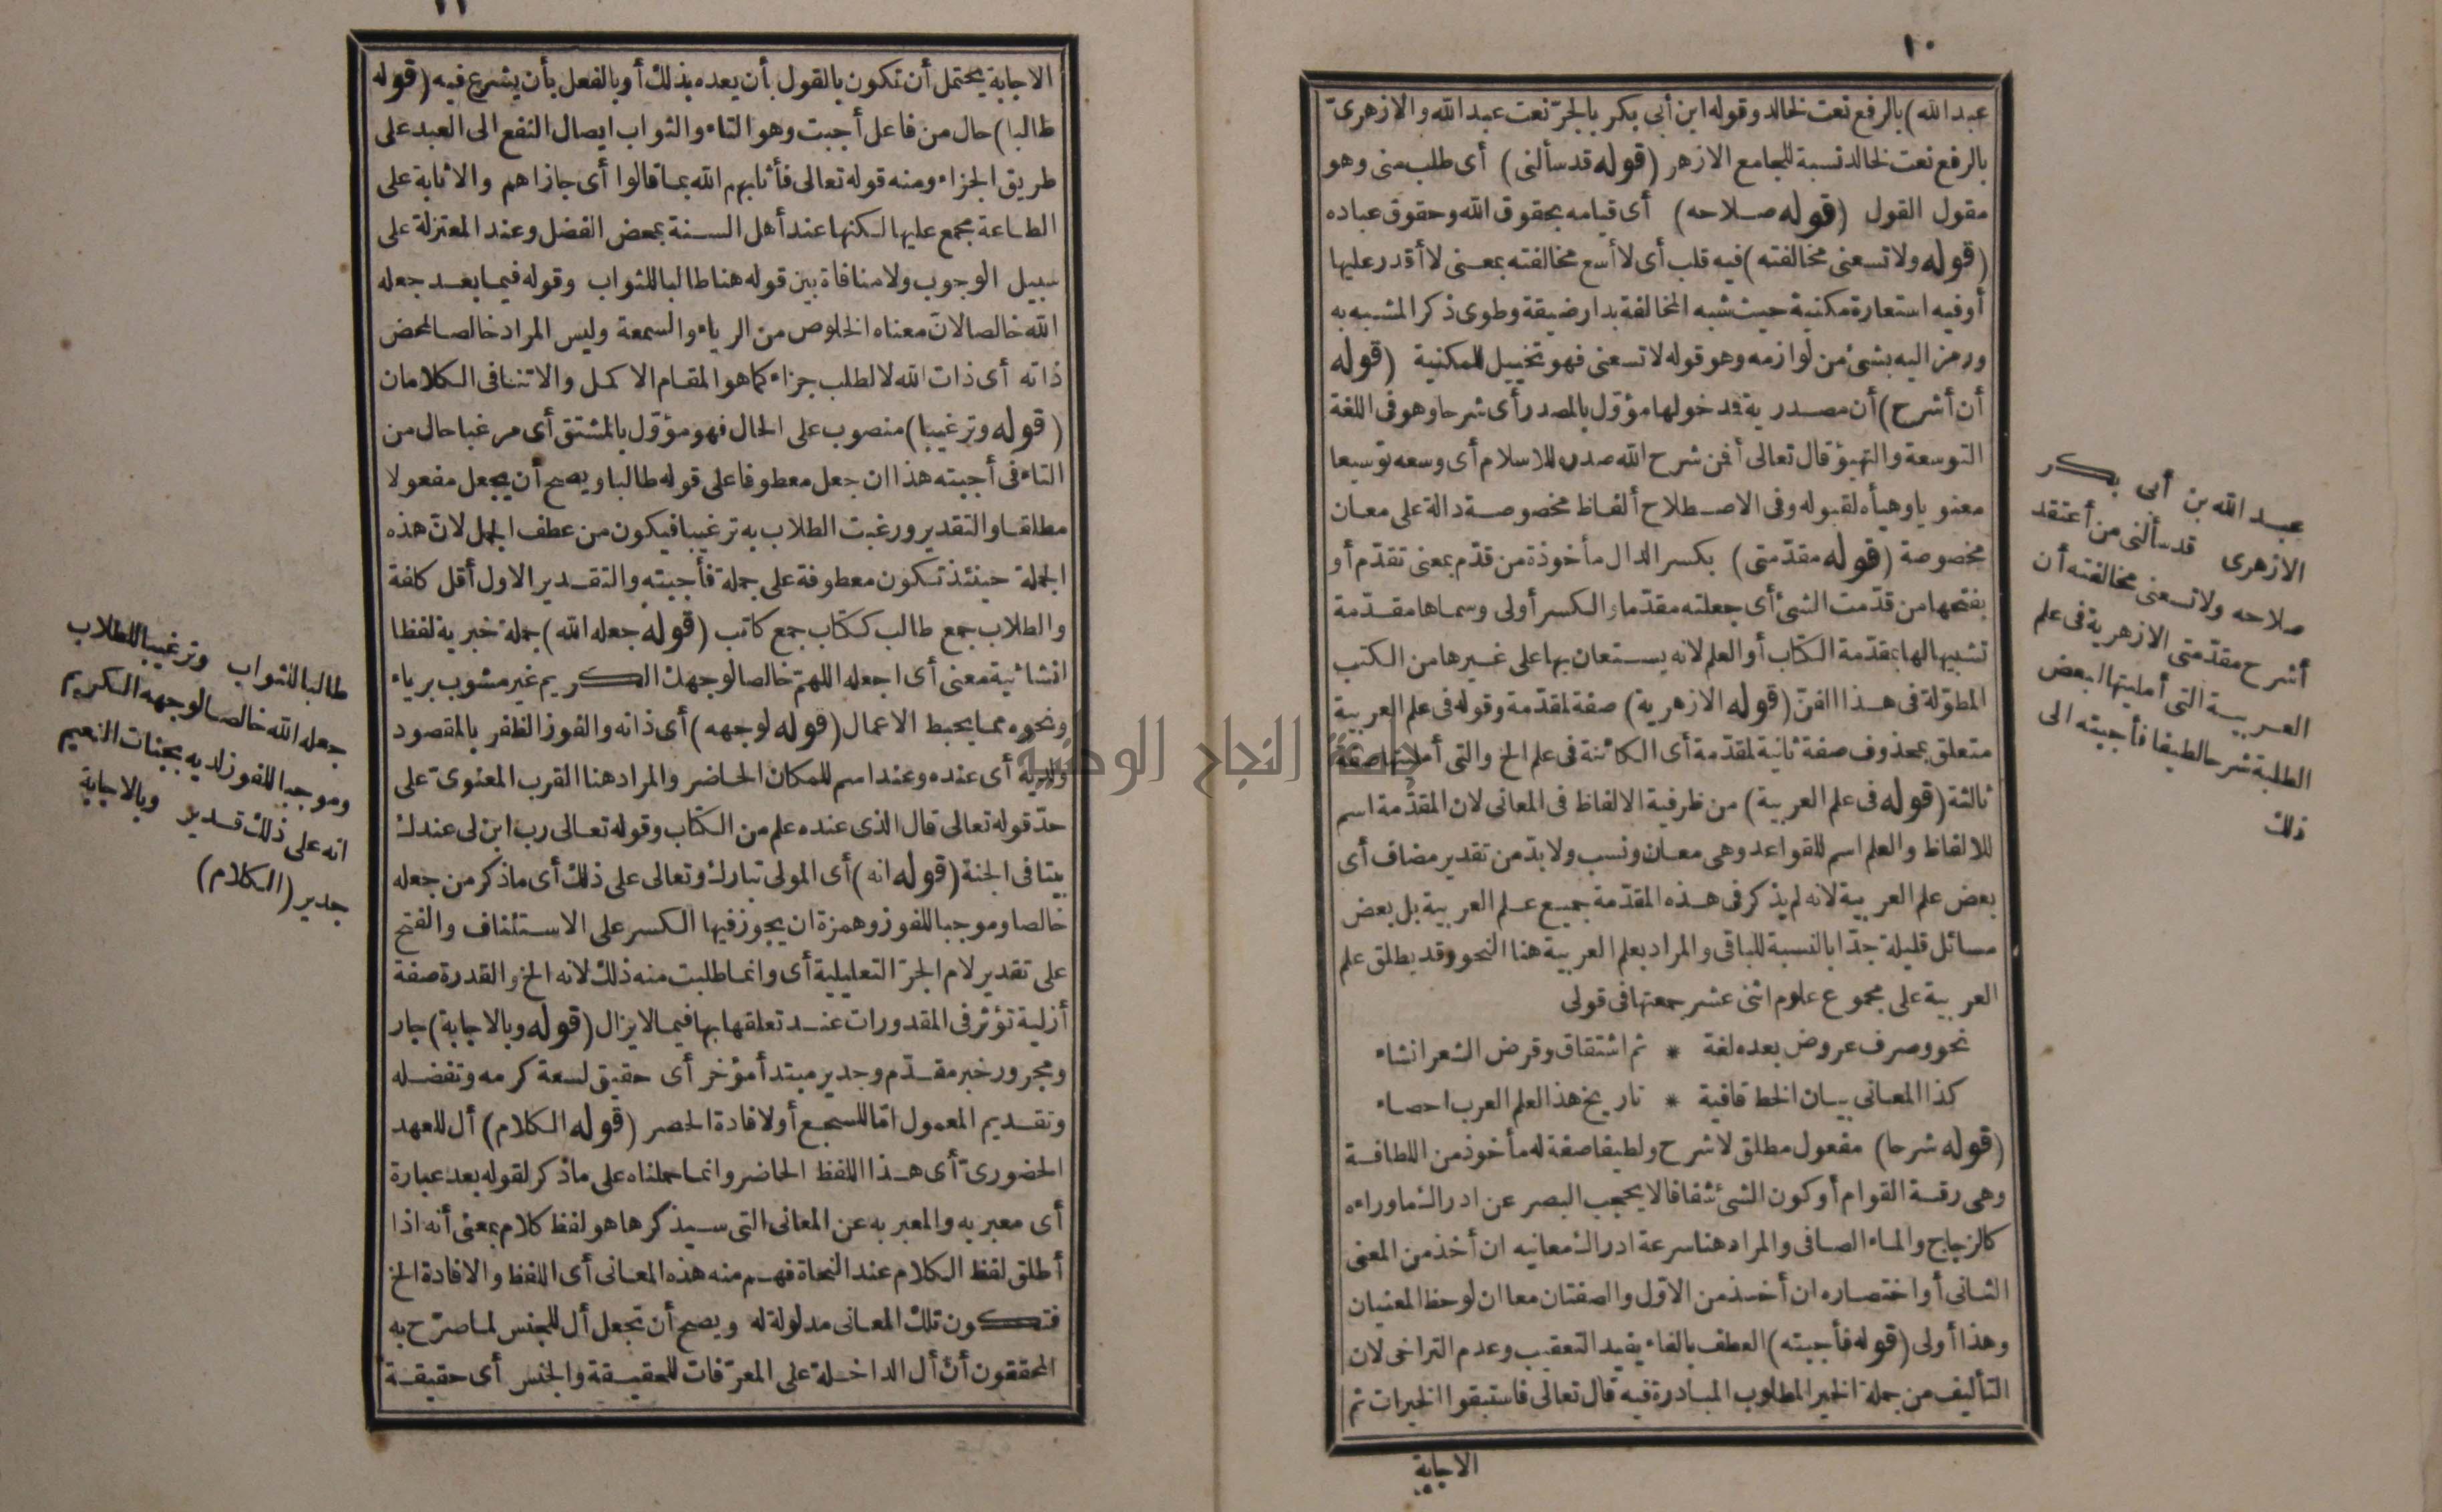 ١٠
عبد الله) بالرفع نعت لخالد وقوله ابن أبى بكر بالجرّ نعت عبد الله والازهرىّ
بالرفع نعت لخالد نسبة للجامع الازهر (قوله قد سألنى) أى طلب منى وهو
مقول القول (قوله صلاحه) أى قيامه بحقوق الله وحقوق عباده
(قوله ولا تسعنى مخالفته) فيه قلب أى لا أسع مخالفته بمعنى لا أقدر عليها
أو فيه استعارة مكنية حيث شبه المخالفة بدار ضيقة وطوى ذكر المشبه به
ورمز اليه بشئ من لوازمه وهو قوله لا تسعنى فهو تخييل للمكنية (قوله
أن أشرح) أن مصدرية فدخولها مؤوّل بالمصدر أى شرحا وهو فى اللغة
التوسعة والتهيؤ قال تعالى أفمن شرح الله صدره للاسلام أى وسعه توسيعا
معنويا وهيأه لقبوله وفى الاصطلاح ألفاظ مخصوصة دالة على معان
مخصوصة (قوله مقدّمتى) بكسر الدال مأخوذة من قدّم بمعنى تقدّم أو
بفتحها من قدّمت الشئ أى جعلته مقدّما والكسر أولى وسماها مقدّمة
تشبيها لها بمقدّمة الكتاب أو العلم لانه يستعان بها على غيرها من الكتب
المطوّلة فى هذا الفنّ (قوله الازهرية) صفة لمقدّمة وقوله فى علم العربية
متعلق بمحذوف صفة ثانية لمقدّمة أى الكائنة فى علم الخ والتى أمليتها صفة
ثالثة (قوله فى علم العربية) من ظرفية الالفاظ فى المعانى لان المقدّمة اسم
للالفاظ والعلم اسم للقواعد وهى معان ونسب ولا بدّ من تقدير مضاف أى
بعض علم العربية لانه لم يذكر فى هذه المقدّمة جميع علم العربية بل بعض
مسائل قليلة جدّا بالنسبة للباقى والمراد بعلم العربية هنا النحو وقد يطلق علم
العربية على مجموع علوم اثنى عشر جمعتها فى قولى
نحو وصرف عروض بعده لغة * ثم اشتقاق وقرض الشعر انشاء
كذا المعانى بيان الخط قافية * تاريخ هذا العلم العرب احصاء
(قوله شرحا) مفعول مطلق لاشرح ولطيفا صفة له مأخوذ من اللطافة
وهى رقة القوام أو كون الشئ شفافا لا يحجب البصر عن ادراك ما وراءه
كالزجاج والماء الصافى والمراد هنا سرعة ادراك معانيه ان أخذ من المعنى
الثانى أو اختصاره ان أخذ من الاوّل والصفتان معا ان لوحظ المعنيان
وهذا أولى (قوله فأجبته) العطف بالفاء يفيد التعقيب وعدم التراخى لان
التأليف من جملة الخير المطلوب المبادرة فيه قال تعالى فاستبقوا الخيرات ثم
الاجابة
عبد الله بن أبى بكر
الازهرى قد سألنى من أعتقد
صلاحه ولا تسعنى مخالفته أن
أشرح مقدّمتى الازهرية فى علم
العربية التى أمليتها لبعض
الطلبة شرحا لطيفا فأجبته الى
ذلك
١١
الاجابة يحتمل أن تكون بالقول بأن يعده بذلك أو بالفعل بأن يشرع فيه (قوله
طالبا) حال من فاعل أجبت وهو التاء والثواب ايصال النفع الى العبد على
طريق الجزاء ومنه قوله تعالى فأثابهم الله بما قالوا أى جازاهم والاثابة على
الطاعة مجمع عليها لكنها عند أهل السنة بمحض الفضل وعند المعتزلة على
سبيل الوجوب ولا منافاة بين قوله هنا طالبا للثواب وقوله فيما بعد جعله
الله خالصا لانّ معناه الخلوص من الرياء والسمعة وليس المراد خالصا لمحض
ذاته أى ذات الله لا لطلب جزاء كما هو المقام الاكمل والا تنافى الكلامان
(قوله وترغيبا) منصوب على الحال فهو مؤوّل بالمشتق أى مرغبا حال من
التاء فى أجبته هذا ان جعل معطوفا على قوله طالبا ويصح أن يجعل مفعولا
مطلقا والتقدير ورغبت الطلاب به ترغيبا فيكون من عطف الجمل لانّ هذه
الجملة حينئذ تكون معطوفة على جملة فأجبته والتقدير الاول أقل كلفة
والطلاب جمع طالب ككتاب جمع كاتب (قوله جعله الله) جملة خبرية لفظا
انشائية معنى أى اجعله اللهمّ خالصا لوجهك الكريم غير مشوب برياء
ونحوه مما يحبط الاعمال (قوله لوجهه) أى ذاته والفوز الظفر بالمقصود
ولديه أى عنده وعند اسم للمكان الحاضر والمراد هنا القرب المعنوىّ على
حدّ قوله تعالى قال الذى عنده علم من الكتاب وقوله تعالى رب ابن لى عندك
بيتا فى الجنة (قوله انه) أى المولى تبارك وتعالى على ذلك أى ما ذكر من جعله
خالصا وموجبا للفوز وهمزة ان يجوز فيها الكسر على الاستئناف والفتح
على تقدير لام الجرّ التعليلية أى وانما طلبت منه ذلك لانه الخ والقدرة صفة
أزلية تؤثر فى المقدورات عند تعلقها بها فيما لا يزال (قوله وبالاجابة) جار
ومجرور خبر مقدّم وجدير مبتدأ مؤخر أى حقيق لسعة كرمه وتفضله
وتقديم المعمول امّا للسجع أو لافادة الحصر (قوله الكلام) أل للعهد
الحضورىّ أى هذا اللفظ الحاضر وانما حملناه على ما ذكر لقوله بعد عبارة
أى معبر به والمعبر به عن المعانى التى سيذكرها هو لفظ كلام بمعنى أنه اذا
أطلق لفظ الكلام عند النحاة فهم منه هذه المعانى أى اللفظ والافادة الخ
فتكون تلك المعانى مدلولة له ويصح أن تجعل أل للجنس لما صرّح به
المحققون أنّ أل الداخلة على المعرّفات للحقيقة والجنس أى حقيقة
طالبا للثواب وترغيبا للطلاب
جعله الله خالصا لوجهه الكريم
وموجبا للفوز لديه بجنات النعيم
انه على ذلك قدير وبالاجابة
جدير (الكلام)
جامعة النجاح الوطنية